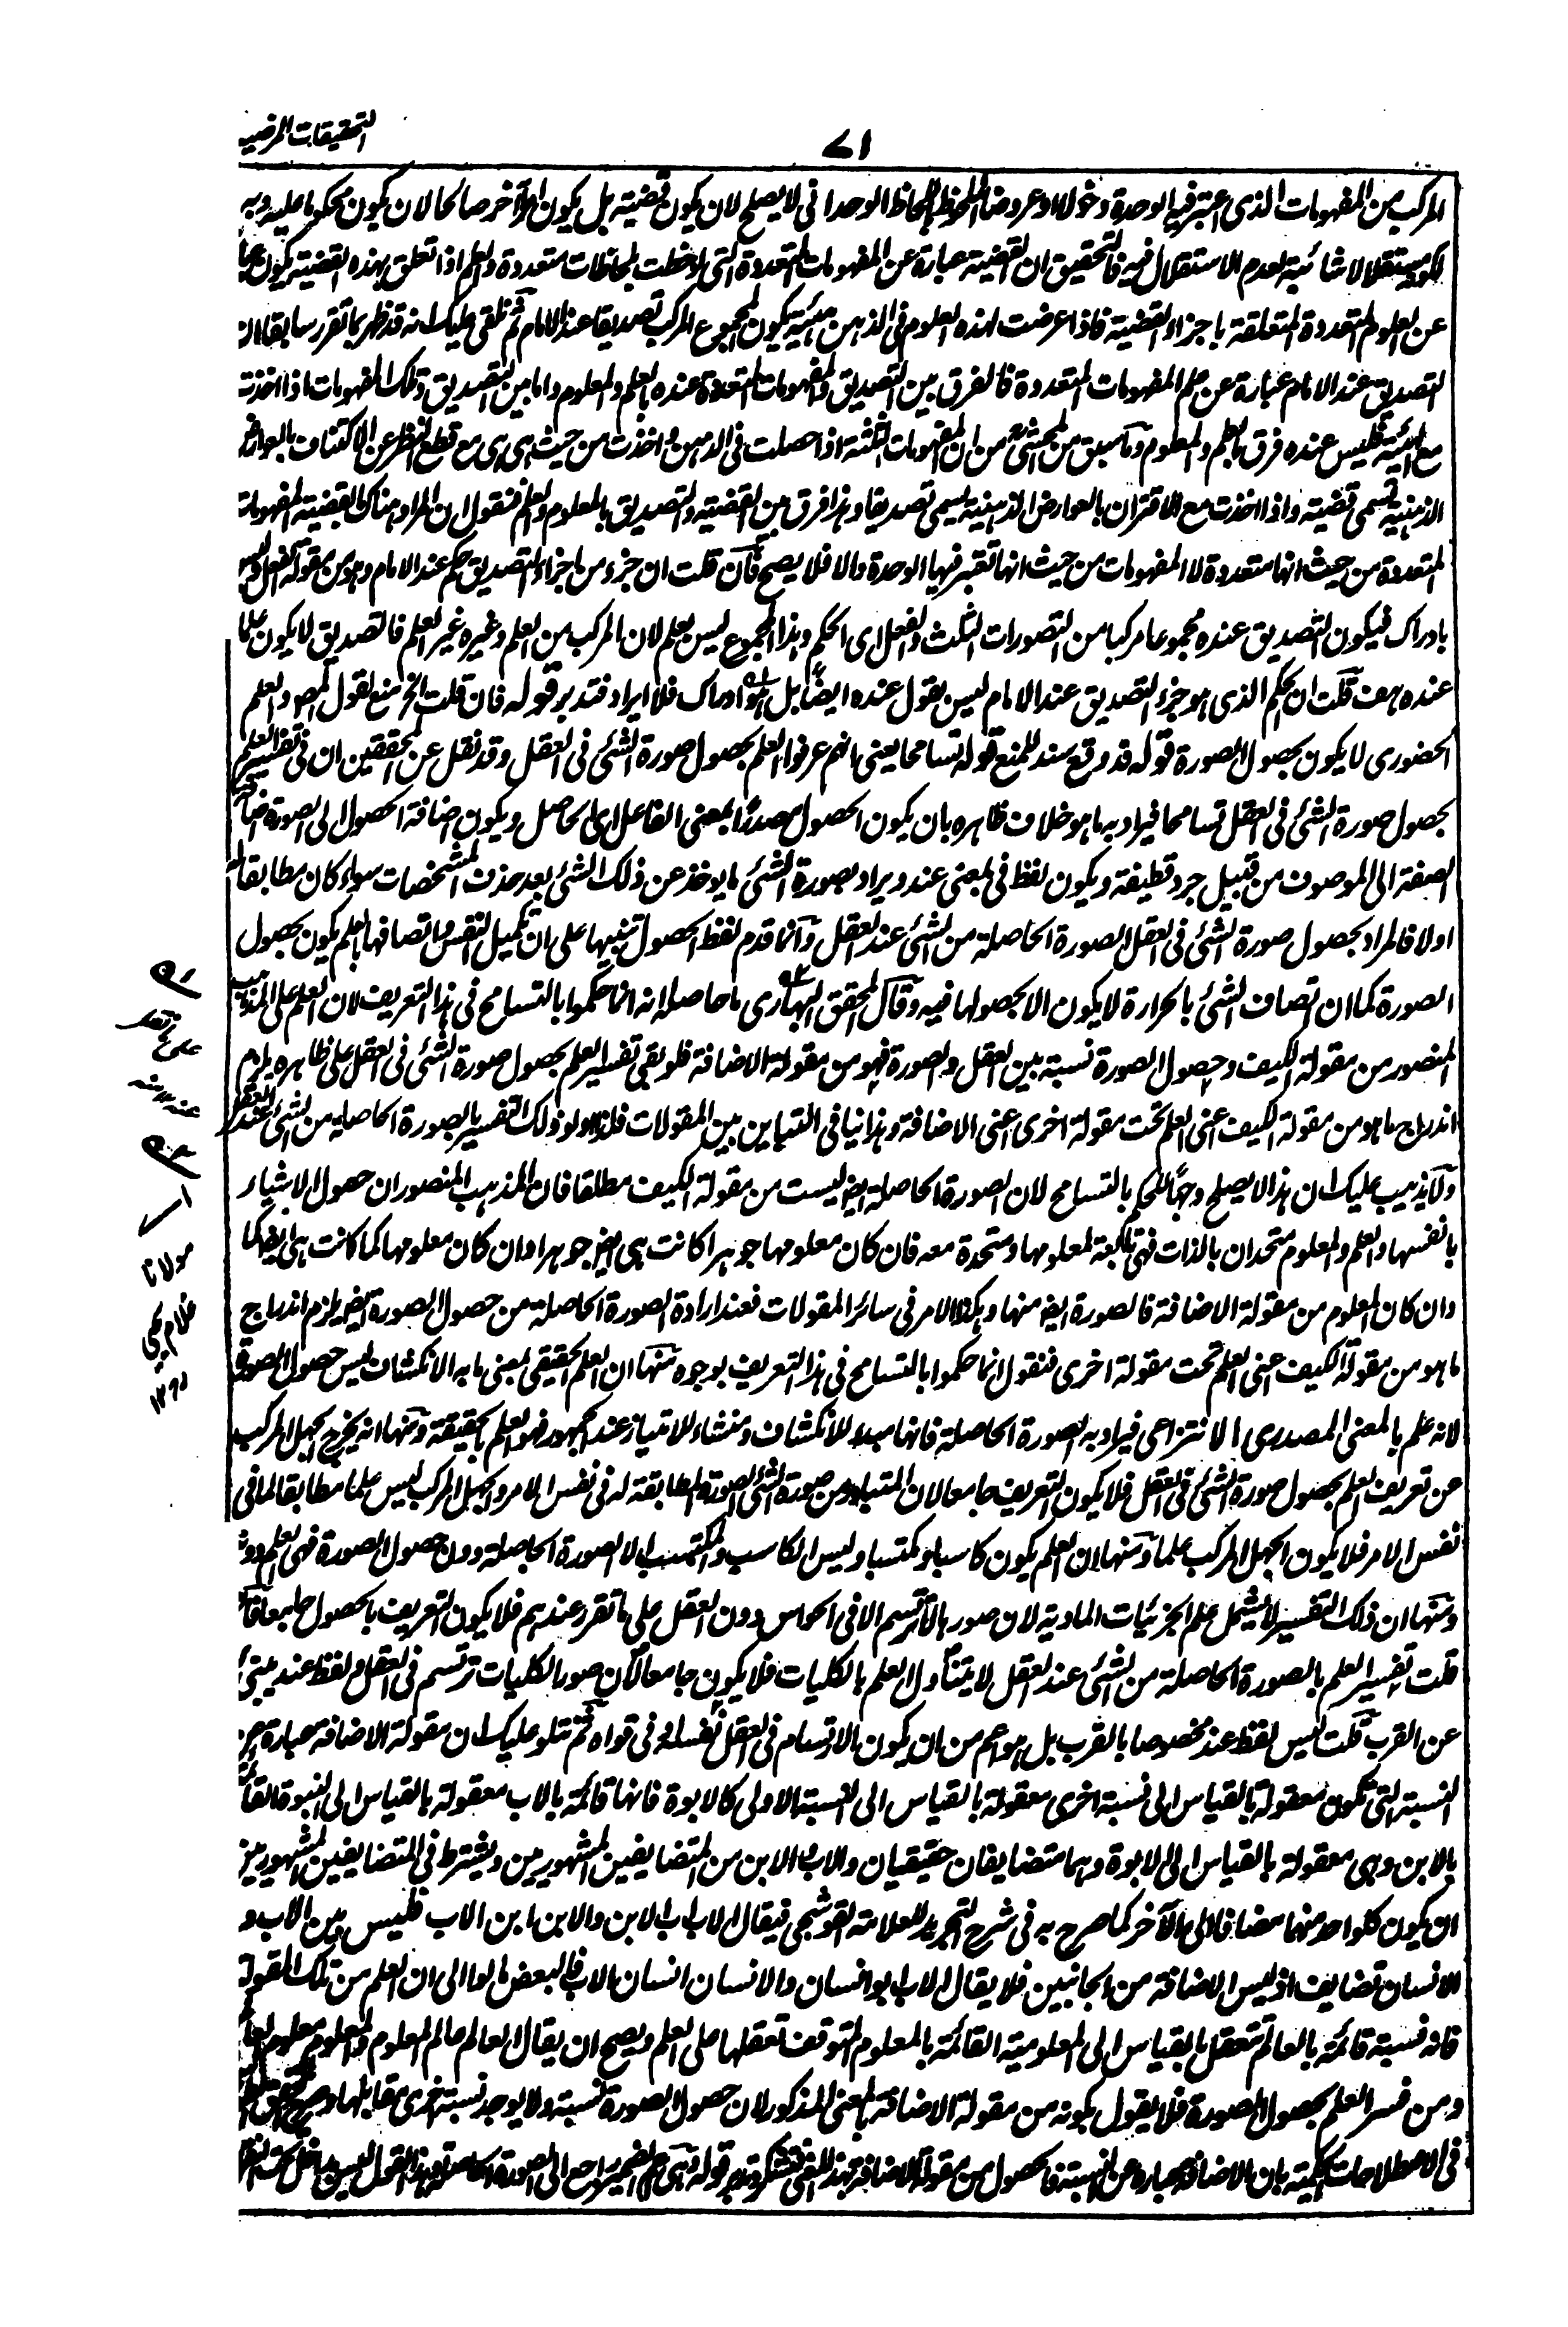 التحقيقات المرضية
٧١
المركب من المفهومات الذى اعتبر فيه الوحدة دخولا او عروضا الملحوظ باللحاظ الوحدانى لا يصلح لان يكون قضيته بل يكون امرا آخر صالحا لان يكون محكوما عليه وبه
لكونه مستقلا لا شائبة لعدم الاستقلال فيه فالتحقيق ان القضيته عبارة عن المفهومات المتعددة التى لوحظت بلحاظات متعددة والعلم اذا تعلق بهذه القضيته يكون عبارة
عن العلوم المتعددة المتعلقة باجزاء القضيته فاذا عرضت لهذه العلوم فى الذهن هيئته يكون المجموع المركب تصديقا عند الامام ثم نلقى عليك انه قد ظهر بما تقرر سابقا ان
التصديق عند الامام عبارة عن علم المفهومات المتعددة فالفرق بين التصديق والمفهومات المتعددة عنده بالعلم والمعلوم واما بين التصديق وتلك المفهومات اذا اخذت
مع الهيئته فليس عنده فرق بالعلم والمعلوم وما سبق من المحشى من ان المفهومات الثلثة اذا حصلت فى الذهن واخذت من حيث هى هى مع قطع النظر عن الاكتناف بالعوارض
الذهنية تسمى قضيته واذا اخذت مع الاقتران بالعوارض الذهنية يسمى تصديقا وهذا فرق بين القضيته والتصديق بالمعلوم والعلم فنقول ان المراد هناك بالقضيته المفهومات
المتعددة من حيث انها متعددة لا المفهومات من حيث انها تعتبر فيها الوحدة والا فلا يصح فان قلت ان جزء من اجزاء التصديق حكم عند الامام وهو من مقولة الفعل وليس
بادراك فيكون التصديق عنده مجموعا مركبا من التصورات الثلث والفعل اى الحكم وهذا المجموع ليس بعلم لان المركب من العلم وغيره غير العلم فالتصديق لا يكون علما
عنده هف قلت ان الحكم الذى هو جزء التصديق عند الامام ليس بفعل عنده ايضا بل هو ادراك فلا ايراد فتدبر قوله فان قلت الخ منع لقول المص والعلم
الحضورى لا يكون بحصول الصورة قوله قد وقع سند للمنع قوله تسامحا يعنى انهم عرفوا العلم بحصول صورة الشئ فى العقل وقد نقل عن المحققين ان فى تفسير العلم
بحصول صورة الشئ فى العقل تسامحا فيراد به ما هو خلاف ظاهره بان يكون الحصول مصدرا بمعنى الفاعل اى الحاصل ويكون اضافة الحصول الى الصورة اضافة
الصفة الى الموصوف من قبيل جرد قطيفة ويكون لفظ فى بمعنى عند ويراد بصورة الشئ ما يوخذ عن ذلك الشئ بعد حذف المشخصات سواء كان مطابقا له
اولا فالمراد بحصول صورة الشئ فى العقل الصورة الحاصلة من الشئ عند العقل وانما قدم لفظ الحصول تنبيها على ان تكميل النفس واتصافها بالعلم يكون بحصول
الصورة كما ان اتصاف الشئ بالحرارة لا يكون الا بحصولها فيه وقال المحقق البهارى ما حاصله انه انما حكموا بالتسامح فى هذا التعريف لان العلم على المذهب
المنصور من مقولة الكيف وحصول الصورة نسبة بين العقل والصورة فهو من مقولة الاضافة فلو بقى تفسير العلم بحصول صورة الشئ فى العقل على ظاهره يلزم
اندراج ما هو من مقولة الكيف اعنى العلم تحت مقولة اخرى اعنى الاضافة وهذا ينافى التباين بين المقولات فلذا اولوا ذلك التفسير بالصورة الحاصلة من الشئ عند العقل
ولا يذهب عليك ان هذا لا يصلح وجها للحكم بالتسامح لان الصورة الحاصلة ايض ليست من مقولة الكيف مطلقا فان المذهب المنصور ان حصول الاشياء
بانفسها والعلم والمعلوم متحدان بالذات فهى تابعة لمعلومها ومتحدة معه فان كان معلومها جوهرا كانت هى ايض جوهرا وان كان معلومها كما كانت هى ايض كما
وان كان المعلوم من مقولة الاضافة فالصورة ايض منها وهكذا الامر فى سائر المقولات فعند ارادة الصورة الحاصلة من حصول الصورة ايض يلزم اندراج
ما هو من مقولة الكيف اعنى العلم تحت مقولة اخرى فنقول انما حكموا بالتسامح فى هذا التعريف بوجوه منها ان العلم الحقيقى بمعنى ما به الانكشاف ليس حصول الصورة
لانه علم بالمعنى المصدرى الانتزاعى فيراد به الصورة الحاصلة فانها مبدء للانكشاف ومنشاء للامتياز عند الجمهور فهو العلم بالحقيقة ومنها انه يخرج الجهل المركب
عن تعريف العلم بحصول صورة الشئ فى العقل فلا يكون التعريف جامعا لان المتبادر من صورة الشئ الصورة المطابقة له فى نفس الامر والجهل المركب ليس علما مطابقا لما فى
نفس الامر فلا يكون الجهل المركب علما ومنها ان العلم يكون كاسبا ومكتسبا وليس الكاسب والمكتسب الا الصورة الحاصلة دون حصول الصورة فهى العلم دونه
ومنها ان ذلك التفسير لا يشمل علم الجزئيات المادية لان صورها لا ترتسم الا فى الحواس دون العقل على ما تقرر عندهم فلا يكون التعريف بالحصول جامعا فان
قلت تفسير العلم بالصورة الحاصلة من الشئ عند العقل لا يتناول العلم بالكليات فلا يكون جامعا لان صور الكليات ترتسم فى العقل ولفظ عند ينبئ
عن القرب قلت ليس لفظ عند مخصوصا بالقرب بل هو اعم من ان يكون بالارتسام فى العقل نفسه او فى قواه ثم نتلو عليك ان مقولة الاضافة عبارة عن
النسبة التى تكون معقولة بالقياس الى نسبة اخرى معقولة بالقياس الى النسبة الاولى كالابوة فانها قائمة بالاب معقولة بالقياس الى البنوة القائمة
بالابن وهى معقولة بالقياس الى الابوة وهما متضايفان حقيقيان والاب والابن من المتضايفين المشهورين ويشترط فى المتضايفين المشهورين
ان يكون كل واحد منهما مضافا الى الآخر كما صرح به فى شرح التجريد للعلامة القوشجى فيقال الاب اب الابن والابن ابن الاب فليس بين الاب و
الانسان تضايف اذ ليس الاضافة من الجانبين فلا يقال الاب ابو انسان والانسان انسان الاب فالبعض مالوا الى ان العلم من تلك المقولة
فانه نسبة قائمة بالعالم تتعقل بالقياس الى المعلومية القائمة بالمعلوم المتوقف تعقلها على العلم ويصح ان يقال العالم عالم المعلوم والمعلوم معلوم العالم
ومن فسر العلم بحصول الصورة فلا يقول بكونه من مقولة الاضافة بالمعنى المذكور لان حصول الصورة نسبة ولا يوجد نسبة اخرى مقابلها
فى الاصطلاحات الحكمية بان الاضافة عبارة عن النسبة فالحصول من مقولة الاضافة بهذا المعنى قوله
٩١
على ما تقرر
عند
٩٢
مولانا
غلام يحيى